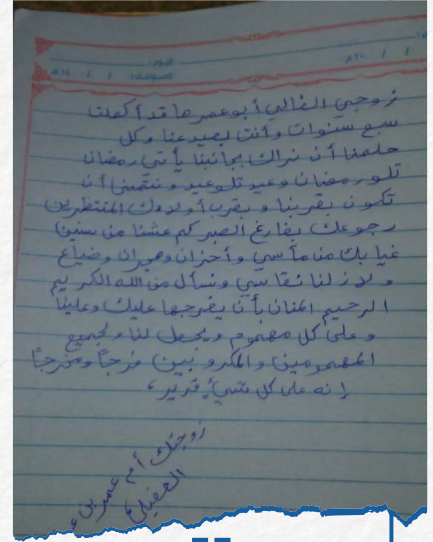 زوجي الغالي أبو عمر ها قد أكملت
سبع سنوات وأنت بعيد عنا وكل
حلمنا أن نراك بجانبنا يأتي رمضان
تلو رمضان وعيد تلو عيد ونتمنى أن
تكون بقربنا وبقرب أولادك المنتظرين
رجوعك بفارغ الصبر كم عشنا من سنين
غيابك من مآسي وأحزان وهجران وضياع
ولازلنا نقاسي ونسأل من الله الكريم
الرحيم المنان بأن يفرجها عليك وعلينا
وعلى كل مهموم ويجعل لنا ولجميع
المهمومين والمكروبين فرجاً ومخرجاً
إنه على كل شيء قدير،
زوجتك أم عمر بن